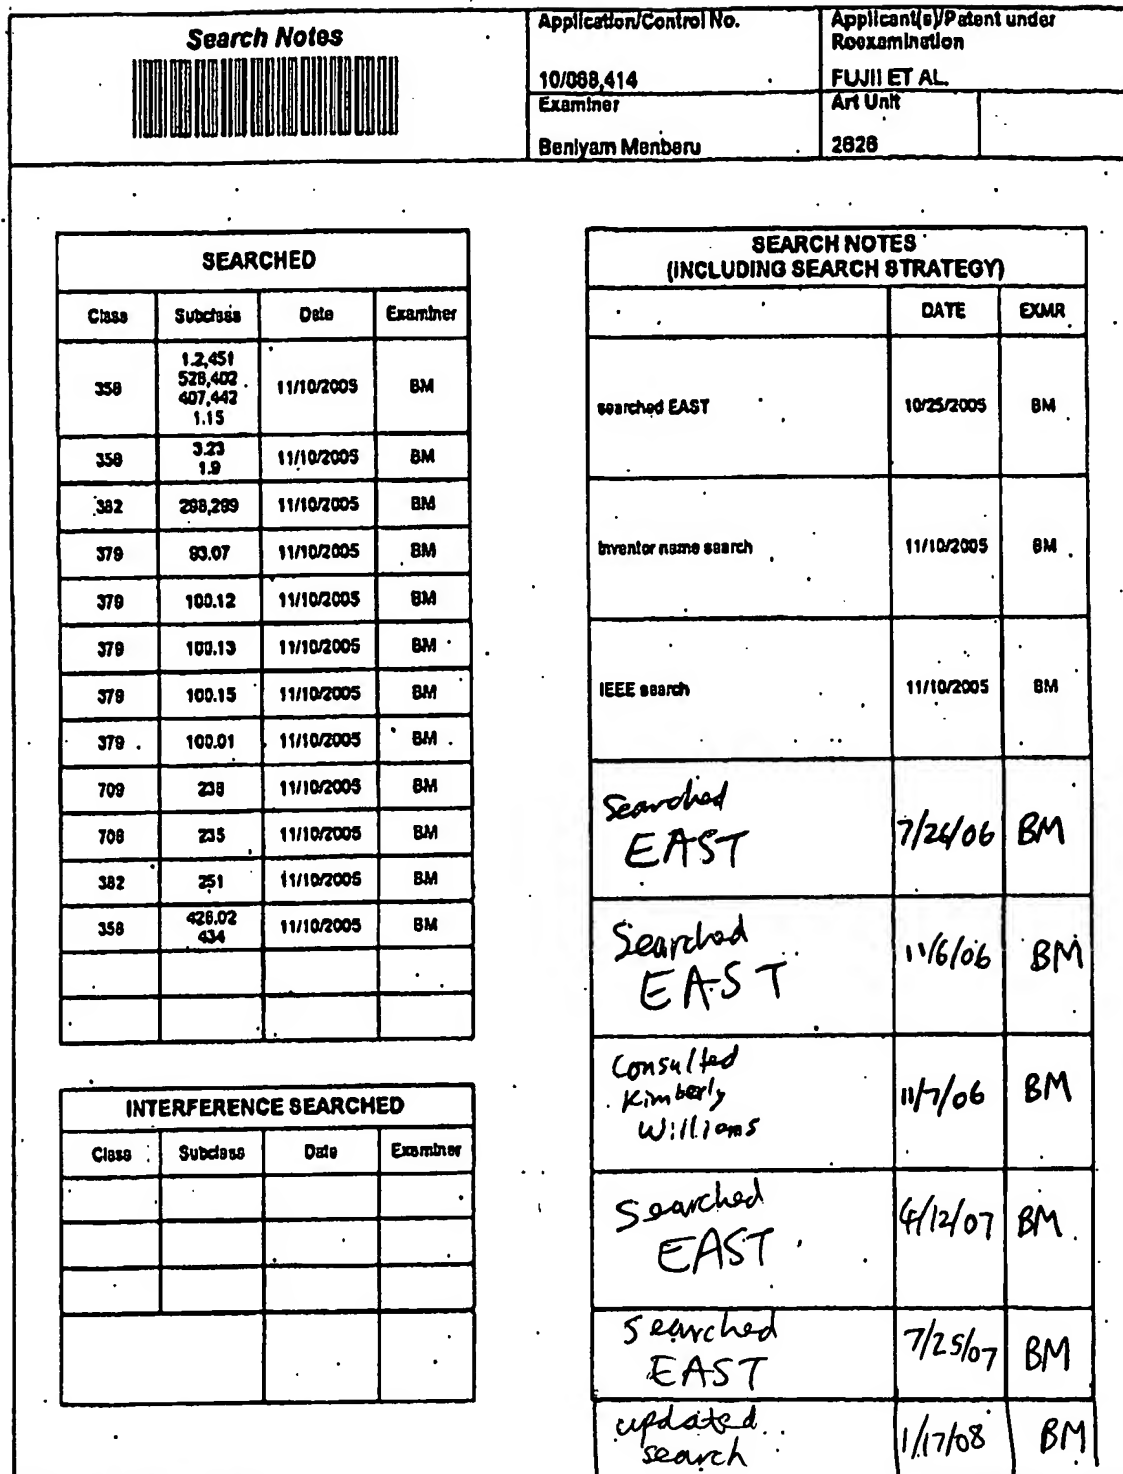 Search Notes
Application/Control No.
10/088,414
Applicant(s)/Patent under
Reexamination
FUJII ET AL.
Examiner
Beniyam Menberu
Art Unit
2626
SEARCHED
Class Subclass Date Examiner
358 1.2,451 11/10/2005 BM
528,402
407,442
1.15
358 3.23 11/10/2005 BM
1.9
382 298,299 11/10/2005 BM
379 93.07 11/10/2005 BM
379 100.12 11/10/2005 BM
379 100.13 11/10/2005 BM
379 100.15 11/10/2005 BM
379 100.01 11/10/2005 BM
709 238 11/10/2005 BM
708 235 11/10/2005 BM
382 251 11/10/2005 BM
358 426.02 11/10/2005 BM
434
INTERFERENCE SEARCHED
Class Subclass Date Examiner
SEARCH NOTES
(INCLUDING SEARCH STRATEGY)
DATE EXMR
searched EAST 10/25/2005 BM
Inventor name search 11/10/2005 BM
IEEE search 11/10/2005 BM
Searched
EAST 7/26/06 BM
Searched
EAST 11/6/06 BM
Consulted
Kimberly
Williams 11/7/06 BM
Searched
EAST 4/12/07 BM
Searched
EAST 7/25/07 BM
updated
search 1/17/08 BM